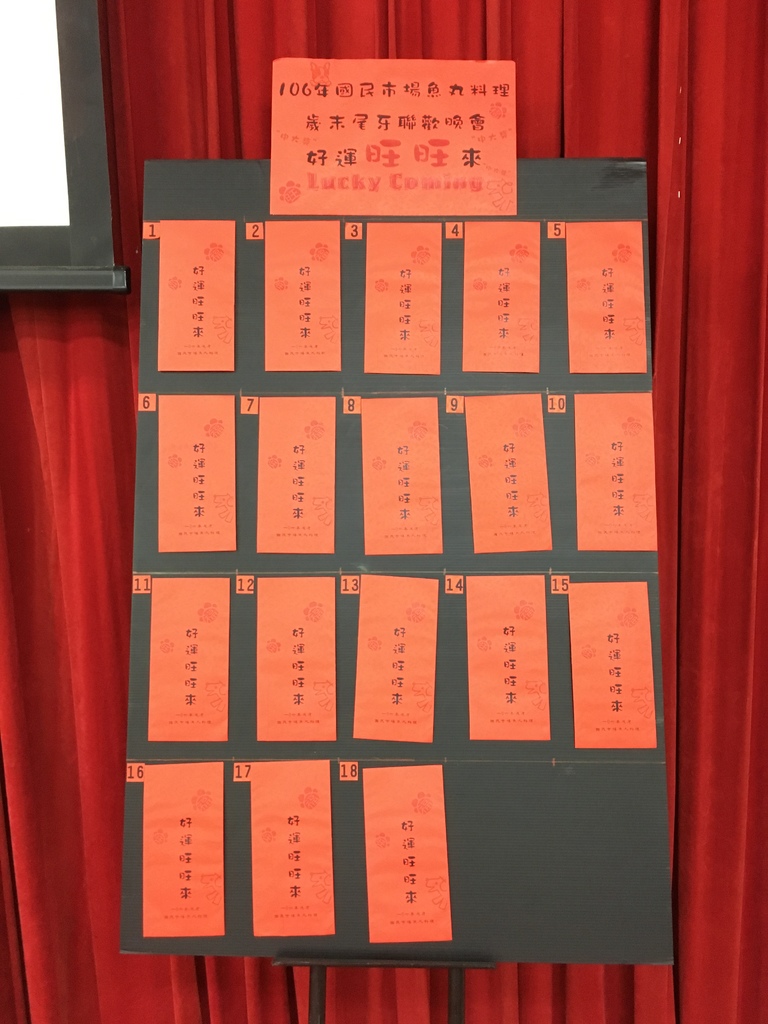 106年國民市場魚丸料理
歲末尾牙聯歡晚會
好運旺旺來
Lucky Coming
1
好運旺旺來
2
好運旺旺來
3
好運旺旺來
4
好運旺旺來
5
好運旺旺來
6
好運旺旺來
7
好運旺旺來
8
好運旺旺來
9
好運旺旺來
10
好運旺旺來
11
好運旺旺來
12
好運旺旺來
13
好運旺旺來
14
好運旺旺來
15
好運旺旺來
16
好運旺旺來
17
好運旺旺來
18
好運旺旺來